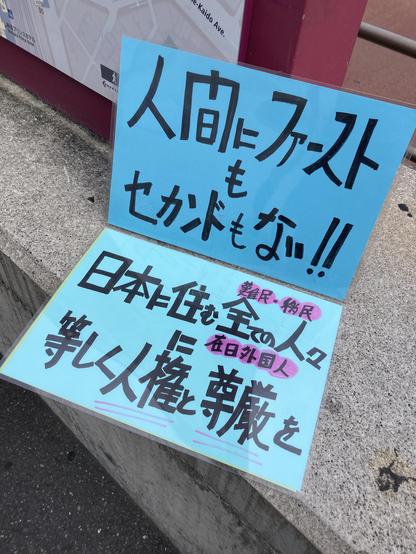 e-Kaido Ave.
人間にファースト
も
セカンドもない!!
難民・移民
日本に住む全ての人々
に 在日外国人
等しく人権と尊厳を